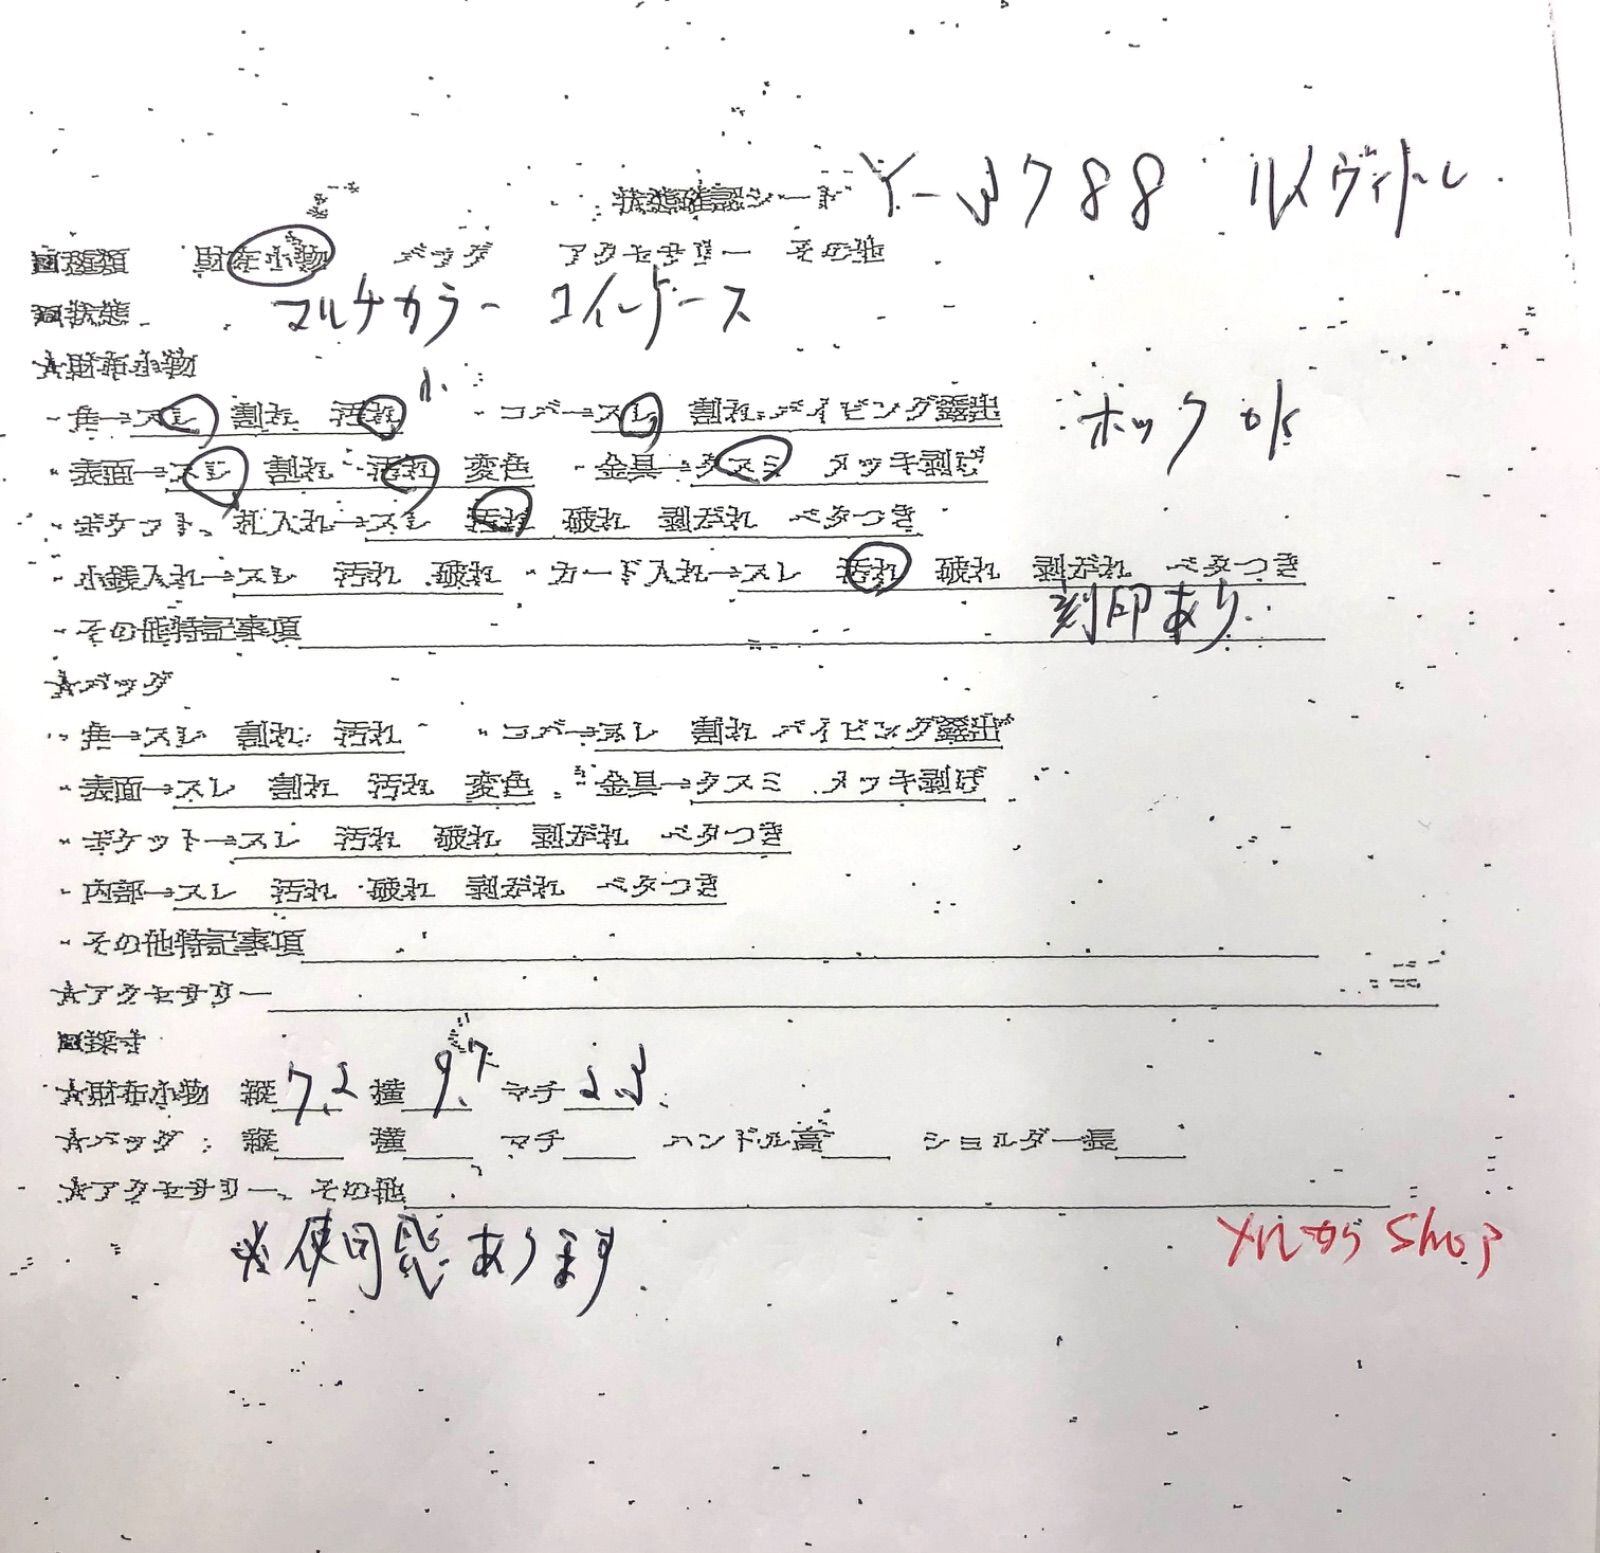 状態確認シート Y-3788 ルイヴィトン.
■種類 財布小物 バッグ アクセサリー その他
■状態 マルチカラー コインケース
★財布小物
・角→スレ 割れ 汚れ 小 ・コバ→スレ 割れ パイピング露出 ホック ok
・表面→スレ 割れ 汚れ 変色 ・金具→クスミ メッキ剥げ
・ポケット、札入れ→スレ 汚れ 破れ 剥がれ ベタつき
・小銭入れ→スレ 汚れ 破れ ・カード入れ→スレ 汚れ 破れ 剥がれ ベタつき
・その他特記事項 刻印あり.
★バッグ
・角→スレ 割れ 汚れ ・コバ→スレ 割れ パイピング露出
・表面→スレ 割れ 汚れ 変色 ・金具→クスミ メッキ剥げ
・ポケット→スレ 汚れ 破れ 剥がれ ベタつき
・内部→スレ 汚れ 破れ 剥がれ ベタつき
・その他特記事項
★アクセサリー
■採寸
★財布小物 縦 7.2 横 9.7 マチ 2.3
★バッグ 縦 横 マチ ハンドル高 ショルダー長
★アクセサリー、その他
※使用感あります.
Shop